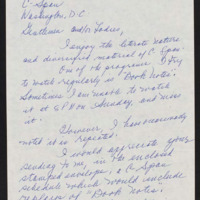 C-Span
Washington, D.C.
Gentlemen and/or Ladies,
I enjoy the literate nature
and diversified material of C-Span.
One of the programs I try
to watch regularly is "Book Notes".
Sometimes I am unable to watch
it at 8 P.M. Sunday, and miss
it.
However, I have occasionally
noted it is repeated.
I would appreciate your
sending to me, in the enclosed
stamped envelope, a C-Span
schedule which would include
replays of "Book Notes".